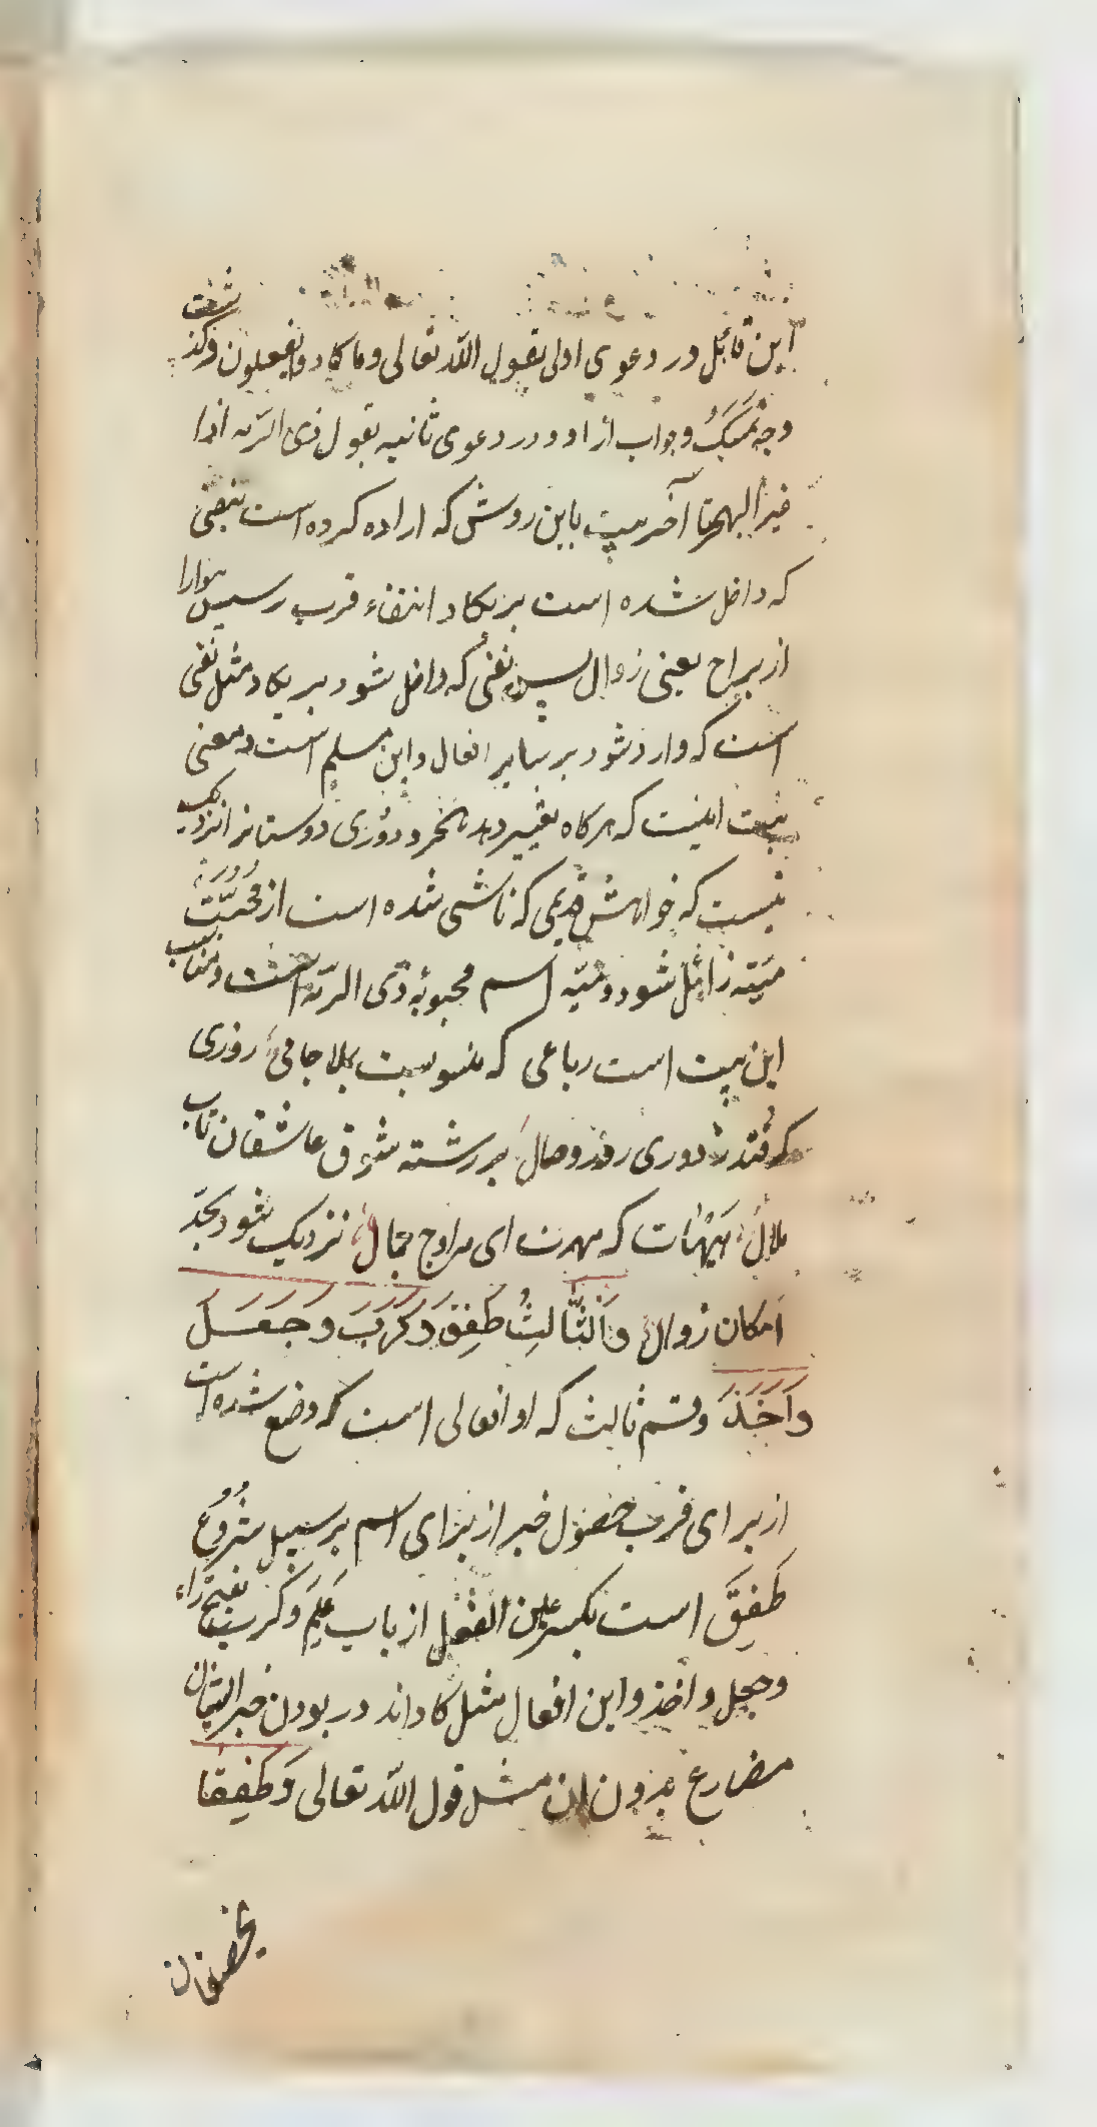 این قائل در دعوی اولی بقول الله تعالی وما کادوا یفعلون وگذشت
وجه تمسک وجواب از او ودر دعوی ثانیه بقول ذی الرمه اذا
غیر الهجر تا آخر بیت باین روش که اراده کرده است بنفی
که داخل شده است بر یکاد انتفاء قرب رسیس هوا را
از براح یعنی زوال پس نفی که داخل شود بر یکاد مثل نفی
است که وارد شود بر سایر افعال واین مسلم است ومعنی
بیت اینست که هرگاه تغییر دهد هجر ودوری دوستانرا نزدیک
نیست که خواهش قدیمی که ناشی شده است از محبت
میته زائل شود ومیّه اسم محبوبهٔ ذی الرمه است ومناسب
این بیت است رباعی که منسوبست بملا جامی روزی
که فتد دوری روز وصال بر رشته شوق عاشقان تاب
ملال هیهات که مهرت ای مه اوج جمال نزدیک شود بحد
امکان زوال وَالثَّالِثُ طَفِقَ وَکَرَبَ وَجَعَلَ
وَاَخَذَ وقسم ثالث که او افعالی است که وضع شده است
از برای قرب حصول خبر از برای اسم بر سبیل شروع
طَفِقَ است بکسر عین الفعل از باب عَلِمَ وکرب بفتح راء
وجعل واخذ واین افعال مثل کاد اند در بودن خبر ایشان
مضارع بدون ان مثل قول الله تعالی وَطَفِقَا
یخصفان